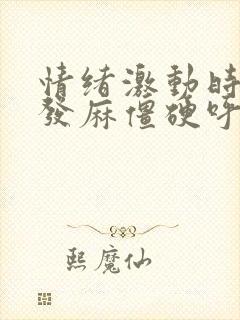 情绪激動時
發麻僵硬呼
熙魔仙